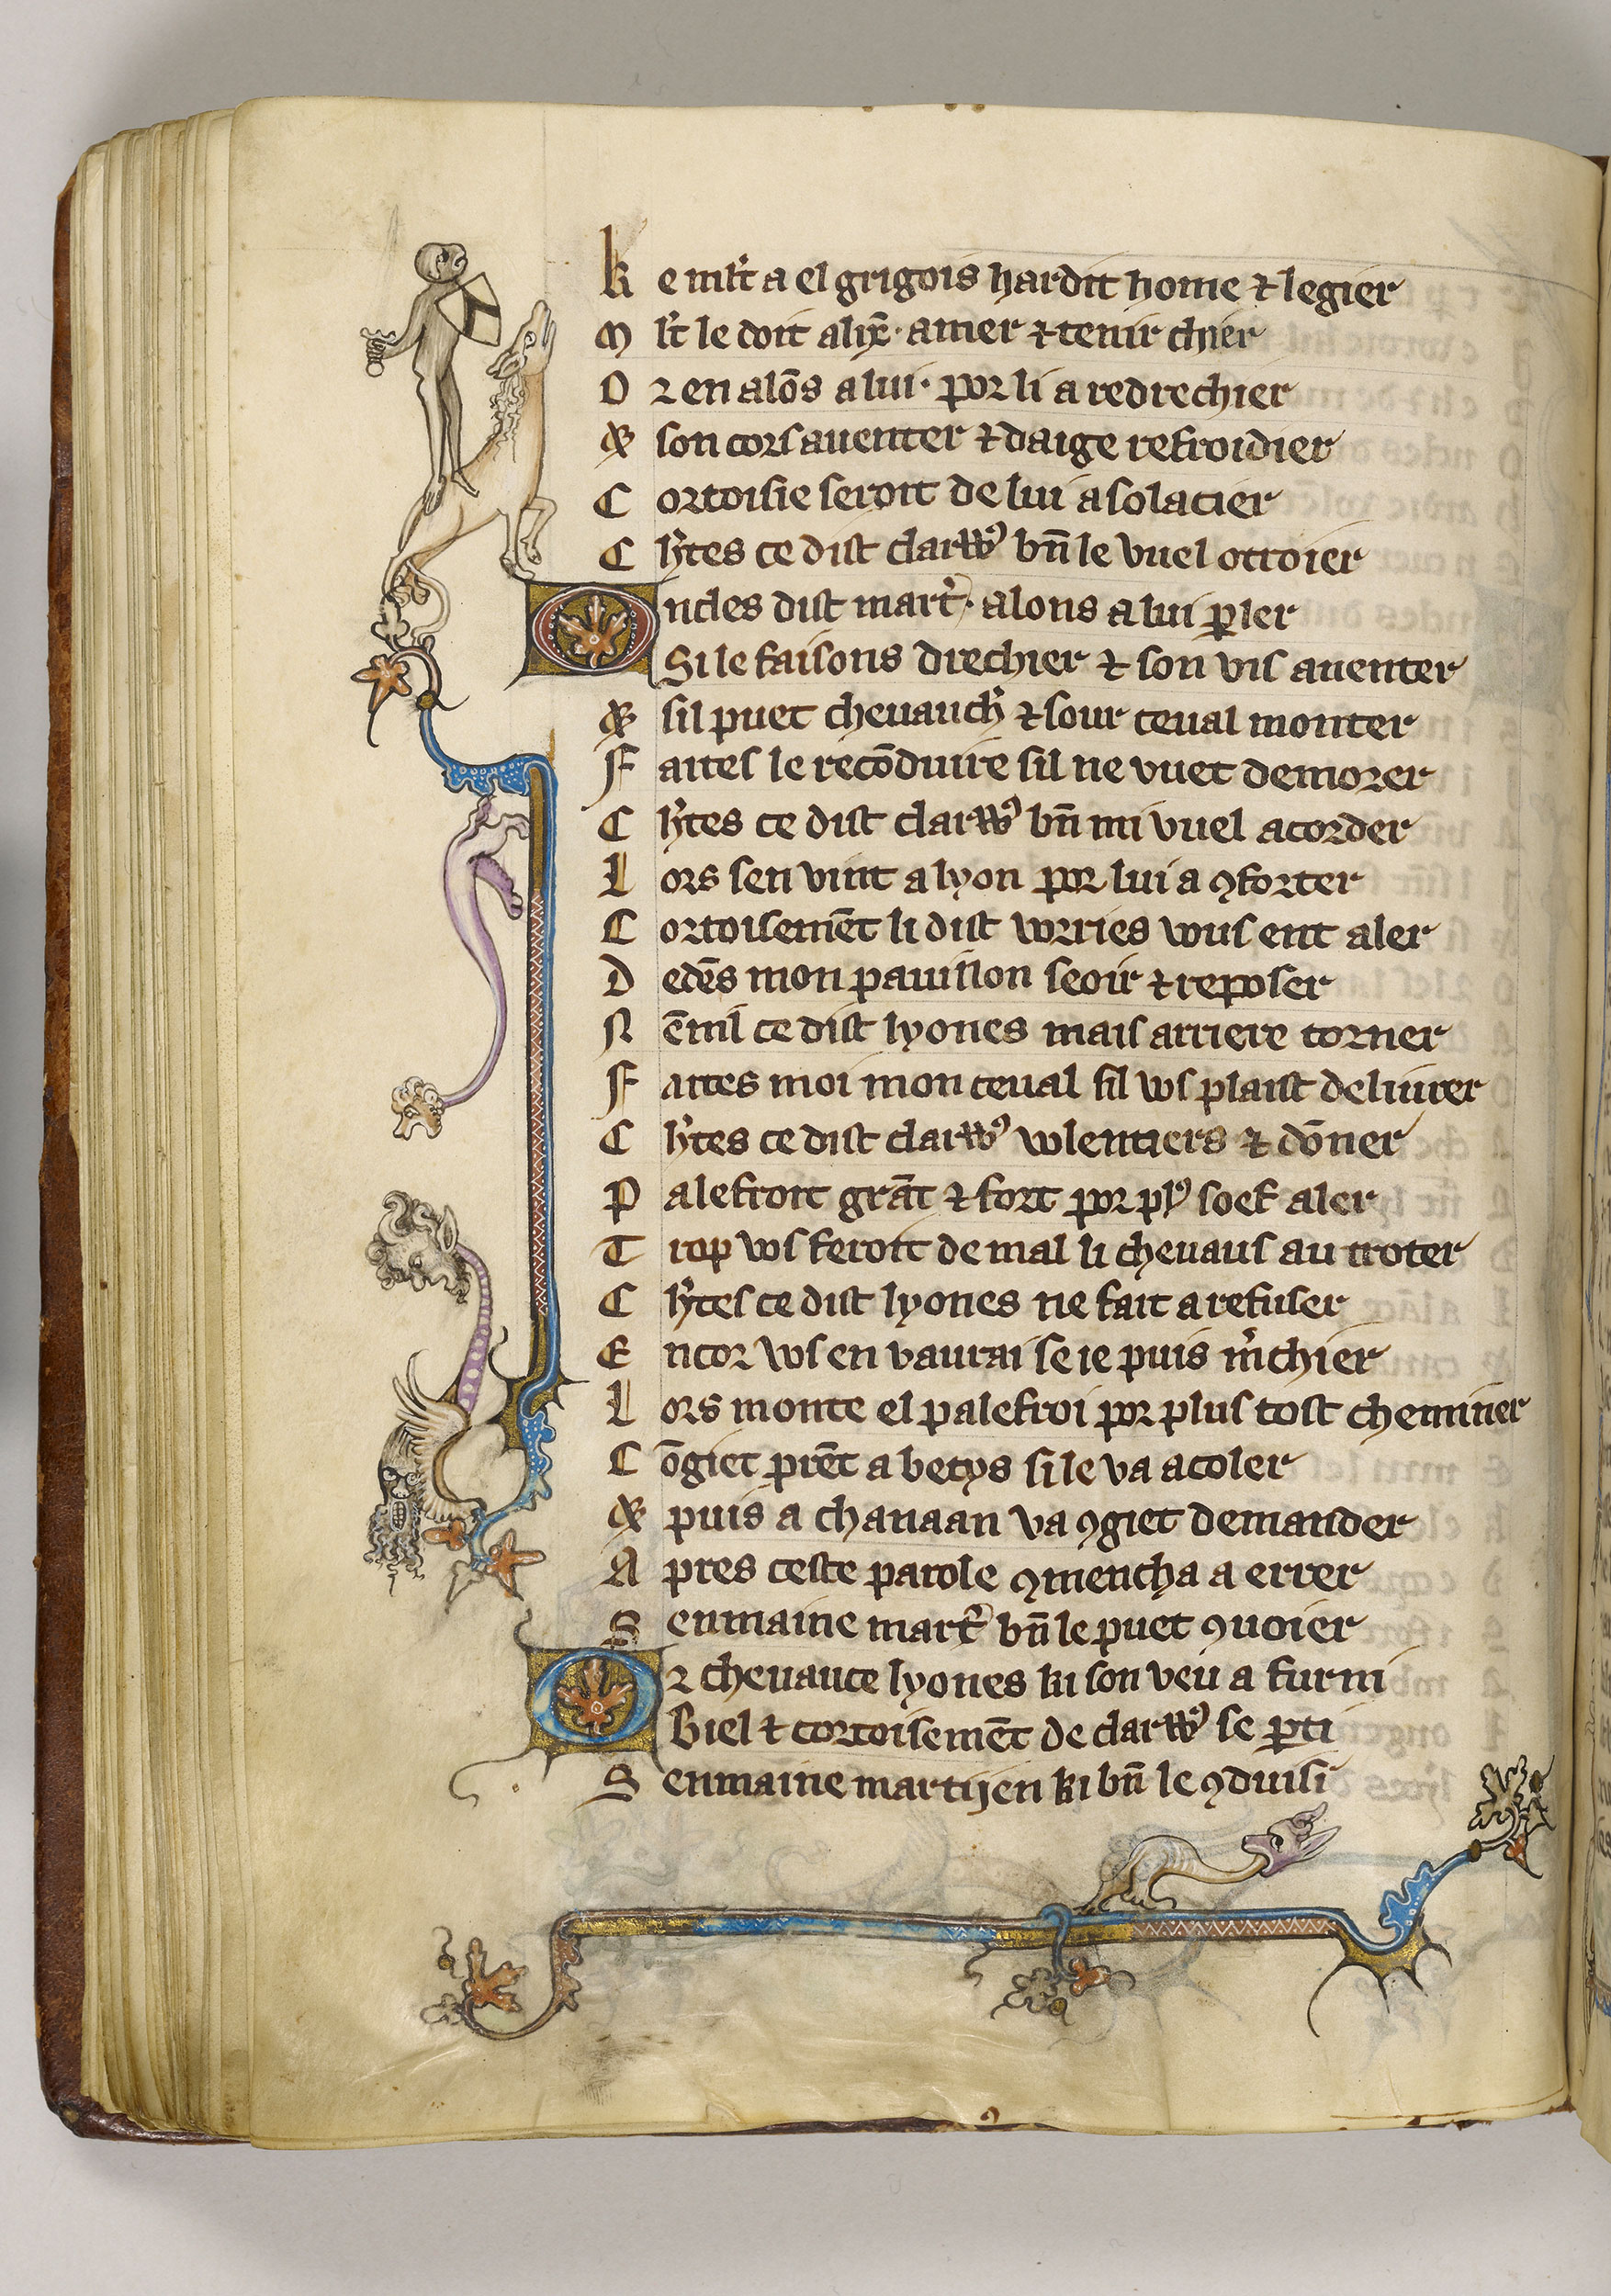 K e ml't a el grigois hardit home ⁊ legier
M l't le doit alix̄· amer ⁊ tenir chier
O r en alōs a lui· por li a redrechier
Et son cors auenter ⁊ daige refroidier
C ortoisie seroit de lui a solacier
C h'r̄tes ce dist clarꝰ bn̄ le vuel otroier
O ncles dist mart'· alons a lui ꝑler
Si le faisons drechier ⁊ son vis auenter
Et sil puet cheuauch' ⁊ sour ceual monter
F aites le recōduire sil ne vuet demorer
C h'r̄tes ce dist clarꝰ bn̄ mi vuel acorder
L ors sen vint a lyon por lui a ꝯforter
C ortoisemēt li dist vorries vous ent aler
D edēs mon pauillon seoir ⁊ reposer
N ēnil ce dist lyones mais arriere torner
F aites moi mon ceual sil vos plaist deliurer
C h'r̄tes ce dist clarꝰ volentiers ⁊ dōner
P alefroit grāt ⁊ fort por plꝰ soef aler
T rop vos feroit de mal li cheuaus au troter
C h'r̄tes ce dist lyones ne fait a refuser
E ncor vos en vaurai se ie puis m'chier
L ors monte el palefroi por plus tost cheminer
C ōgiet prēt a betys si le va acoler
Et puis a chanaan va ꝯgiet demander
A pres ceste parole ꝯmencha a errer
S enmaine mart' bn̄ le puet ꝯuoier
O r cheuauce lyones ki son veu a furni
Biel ⁊ cortoisemēt de clarꝰ se ꝑti
S enmaine martijen ki bn̄ le ꝯduisi